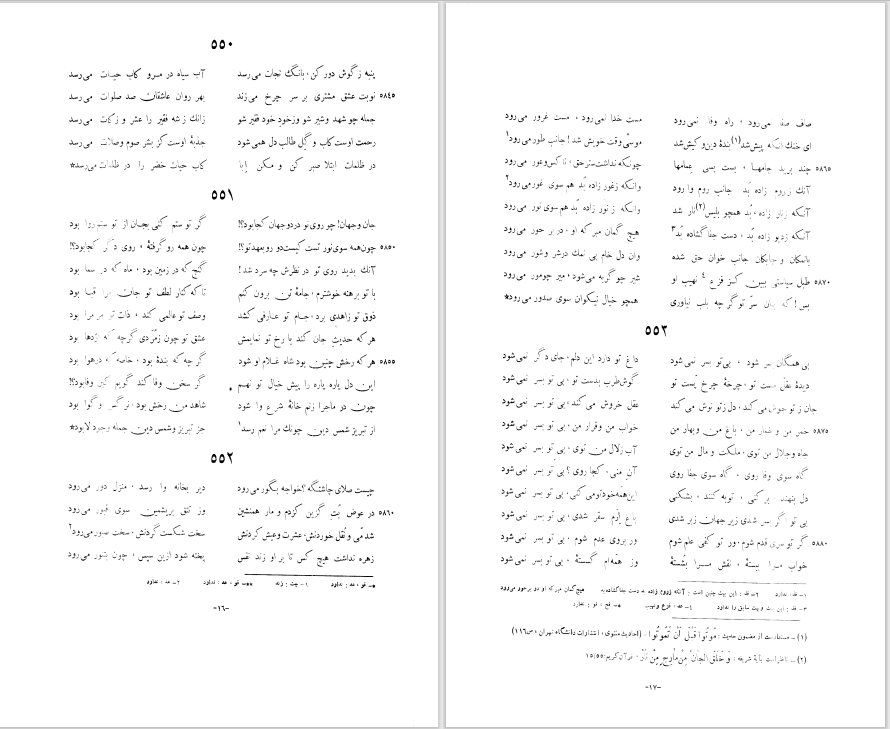 ٥٥٠
پنبه ز گوش دور کن، بانگ نجات می‌رسد آب سیاه در مرو کاب حیات می‌رسد
٥٨٤٥ نوبت عشق مشتری بر سر چرخ می‌زند بهر روان عاشقان صد صلوات می‌رسد
جمله چو شهد و شیر شو وز خود خود فقیر شو زانك ز شه فقیر را عشر و زکات می‌رسد
رحمت اوست کاب و گل طالب دل همی شود جذبهٔ اوست کز بشر صوم و صلات می‌رسد
در ظلمات ابتلا صبر کن و مکن إبا کاب حیات خضر را در ظلمات می‌رسد*
٥٥١
جان و جهان! چو روی تو در دو جهان کجا بود؟! گر تو ستم کنی بجان از تو ستم روا بود
٥٨٥٠ چون همه سوی نور تست کیست دو رو بعهد تو؟! چون همه رو گرفتهٔ، روی دگر کجا بود؟!
آنك بدید روی تو در نظرش چه سرد شد! گنج که در زمین بود، ماه که در سما بود
با تو برهنه خوشترم، جامهٔ تن برون کنم تا که کنار لطف تو جان مرا قبا بود
ذوق تو زاهدی برد، جام تو عارفی کشد وصف تو عالمی کند، ذات تو مر مرا بود
هر که حدیث جان کند با رخ تو نمایمش عشق تو چون زمرّدی گرچه که اژدها بود
٥٨٥٥ هر که رخش چنین بود شاه غلام او شود گر چه که بندهٔ بود، خاصه که در هوا بود
این دل پاره پاره را پیش خیال تو نهم گر سخن وفا کند گویم کین وفا بود؟!
چون در ماجرا زنم خانهٔ شرع وا شود شاهد من رخش بود، نرگس او گوا بود
از تبریز شمس دین چونك مرا نعم رسد١ جز تبریز و شمس دین جمله وجود لا بود*
٥٥٢
چیست صلای چاشتگه؟ خواجه بگور می‌رود دیر بخانه وا رسد، منزل دور می‌رود
٥٨٦٠ در عوض بُت گزین کژدم و مار همنشین وز تتق بریشمین سوی قبور می‌رود
شد می و نُقل خوردنش، عشرت و عیش کردنش سخت شکست گردنش، سخت صبور می‌رود٢
زهره نداشت هیچ کس تا بر او زند نفس پخته شود ازین سپس، چون بتنور می‌رود
*- قو، عد: ندارد ١- چت: زند **- قو، عد: ندارد ٢- عد: ندارد
-١٦-
صاف صفا نمی‌رود، راه وفا نمی‌رود مست خدا نمی‌رود، مست غرور می‌رود
ای خنك آنکه پیش شد(١) بندهٔ دین و کیش شد موسی وقت خویش شد! جانب طور می‌رود١
٥٨٦٥ چند برید جامها، بست بسی عمامها چونکه نداشت ستر حق، ناکس و عور می‌رود
آنك ز روم زاده بُد جانب روم وا رود وانکه ز غور زاده بُد هم سوی غور می‌رود٢
آنکه ز نار زاده بُد همچو بلیس(٢) نار شد وانکه ز نور زاده بُد هم سوی نور می‌رود
آنکه ز دیو زاده بُد، دست جفا گشاده بُد٣ هیچ گمان مبر که او، در بر حور می‌رود
بانمکان و جابکان جانب خوان حق شده وان دل خام بی نمك در شر و شور می‌رود
٥٨٧٠ طبل سیاستی ببین کز فزع ٤ نهیب او شیر چو گربه می‌شود، میر چو مور می‌رود
بس! که بیان سرّ تو گر چه بلب نیاوری همچو خیال نیکوان سوی صدور می‌رود*
٥٥٣
بی همگان بسر شود، بی‌تو بسر نمی‌شود داغ تو دارد این دلم، جای دگر نمی‌شود
دیدهٔ عقل مست تو، چرخهٔ چرخ پست تو گوش طرب بدست تو، بی تو بسر نمی‌شود
جان ز تو جوش می‌کند، دل ز تو نوش می‌کند عقل خروش می‌کند، بی تو بسر نمی‌شود
٥٨٧٥ خمر من و خمار من، باغ من و بهار من خواب من و قرار من، بی تو بسر نمی‌شود
جاه و جلال من توی، ملکت و مال من توی آب زلال من توی، بی تو بسر نمی‌شود
گاه سوی وفا روی، گاه سوی جفا روی آن منی، کجا روی؟ بی تو بسر نمی‌شود
دل بنهند، بر کنی، توبه کنند، بشکنی این همه خود تو می کنی، بی تو بسر نمی‌شود
بی تو اگر بسر شدی زیر جهان زبر شدی باغ اِرَم سقر شدی، بی تو بسر نمی‌شود
٥٨٨٠ گر تو سری قدم شوم، ور تو کفی علم شوم ور بروی عدم شوم، بی تو بسر نمی‌شود
خواب مرا ببستهٔ، نقش مرا بشستهٔ وز همه‌ام گسستهٔ، بی تو بسر نمی‌شود
١- فذ: ندارد ٢- فذ: این بیت چنین است: آنکه ز روم زاده بد دست جفا گشاده بد هیچ گمان مبر که او در بر حور می‌رود
٣- فذ: این بیت و بیت سابق را ندارد ٤- عد: فزع و نهیب *- فح، قو: ندارد
(١) - مستفادست از مضمون حدیث: مُوتُوا قَبْلَ أَنْ تَمُوتُوا. (احادیث مثنوی، انتشارات دانشگاه تهران، ص ١١٦)
(٢) - ناظر است بآیهٔ شریفه: وَ خَلَقَ الْجَانَّ مِنْ مارِجٍ مِنْ نارٍ، قرآن کریم، ١٥/٥٥
-١٧-